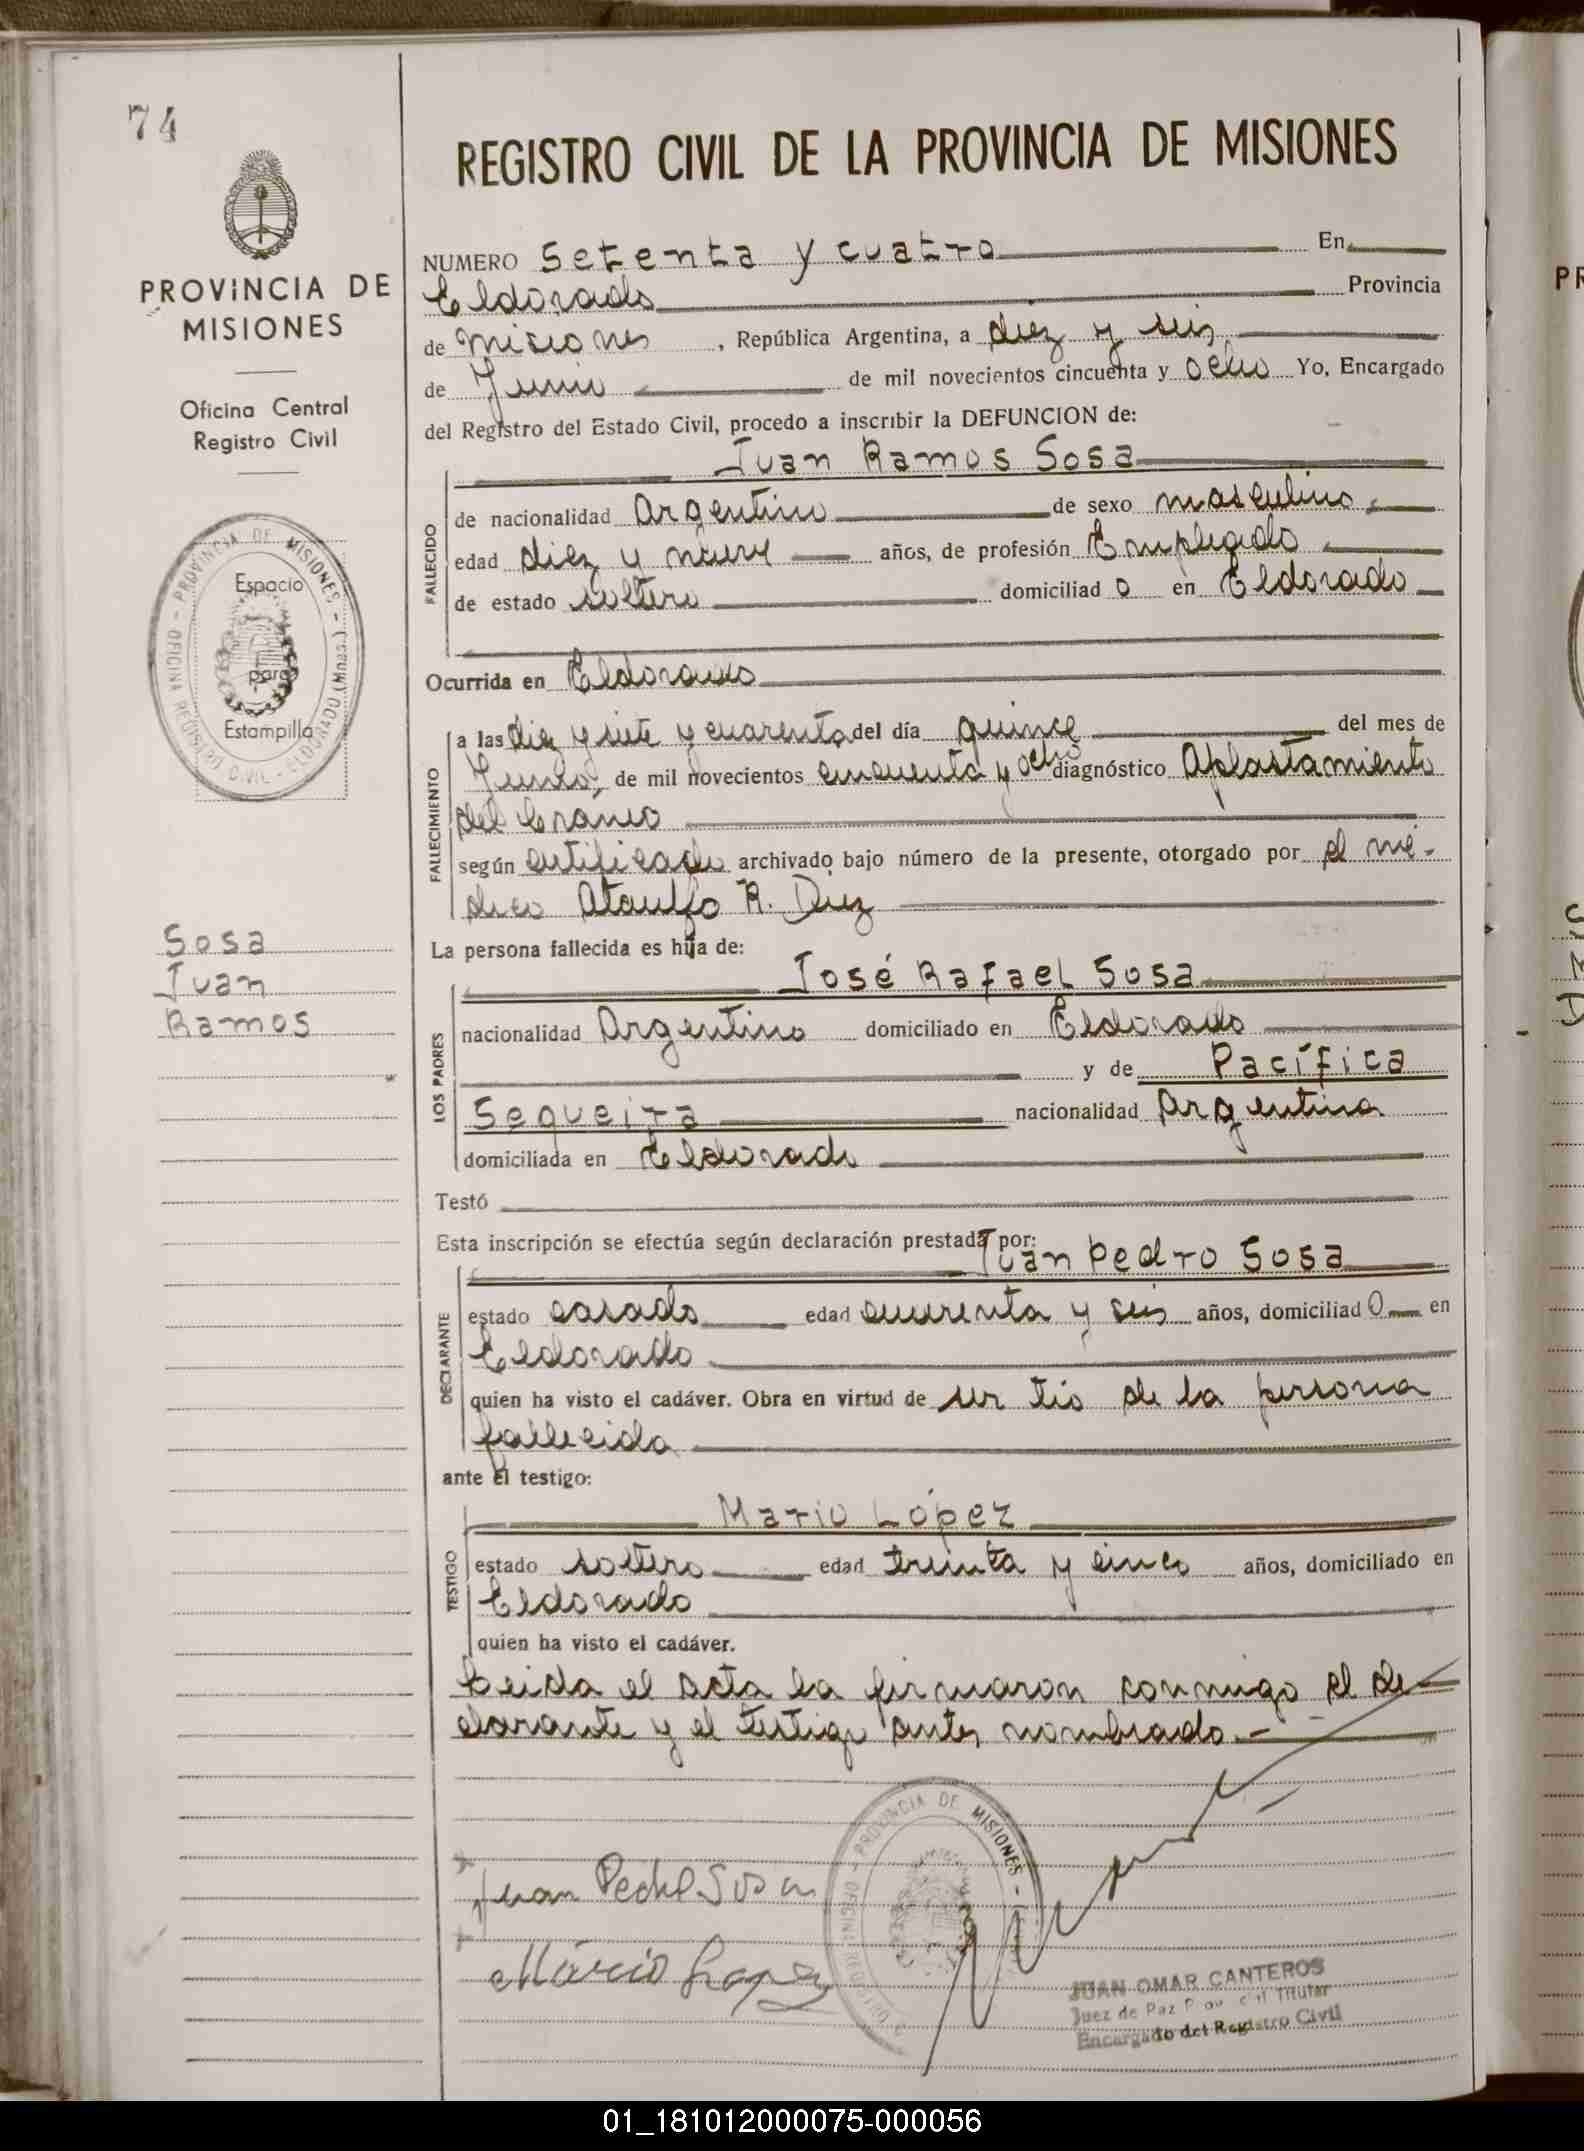 74
PROVINCIA DE
MISIONES
Oficina Central
Registro Civil
OFICINA REGISTRO CIVIL - ELDORADO (Mnes.) - PROVINCIA DE MISIONES -
Espacio
para
Estampilla
Sosa
Juan
Ramos
REGISTRO CIVIL DE LA PROVINCIA DE MISIONES
NUMERO Setenta y cuatro En
Eldorado Provincia
de Misiones , República Argentina, a diez y seis
de Junio de mil novecientos cincuenta y ocho Yo, Encargado
del Registro del Estado Civil, procedo a inscribir la DEFUNCION de:
Juan Ramos Sosa
FALLECIDO
de nacionalidad Argentino de sexo masculino
edad diez y nueve años, de profesión Empleado
de estado soltero domiciliad o en Eldorado
Ocurrida en Eldorado
FALLECIMIENTO
a las diez y siete y cuarenta del día quince del mes de
Junio, de mil novecientos cincuenta y ocho diagnóstico Aplastamiento
del Craneo
según certificado archivado bajo número de la presente, otorgado por el mé-
dico Ataulfo R. Diez
La persona fallecida es hija de:
LOS PADRES
José Rafael Sosa
nacionalidad Argentino domiciliado en Eldorado
y de Pacífica
Sequeira nacionalidad Argentina
domiciliada en Eldorado
Testó
Esta inscripción se efectúa según declaración prestada por:
DECLARANTE
Juan Pedro Sosa
estado casado edad cuarenta y seis años, domiciliad o en
Eldorado
quien ha visto el cadáver. Obra en virtud de ser tío de la persona
fallecida
ante el testigo:
TESTIGO
Mario López
estado soltero edad treinta y cinco años, domiciliado en
Eldorado
quien ha visto el cadáver.
Leida el acta la firmaron conmigo el de-
clarante y el testigo antes nombrado.-
PROVINCIA DE MISIONES -
Juan Pedro Sosa
Márcio Lopez
JUAN OMAR CANTEROS
Juez de Paz Titular
Encargado del Registro Civil
PR
01_181012000075-000056